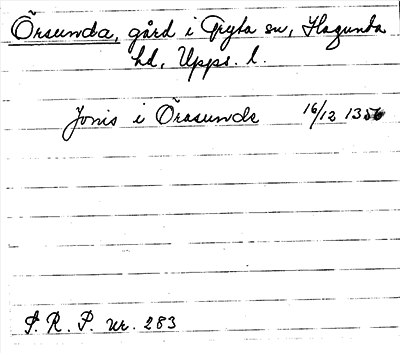 Örsunda, gård i Gryta sn, Hagunda
hd, Upps. l.
Jonis i Örasunde 16/12 1356
S. R. P. nr. 283